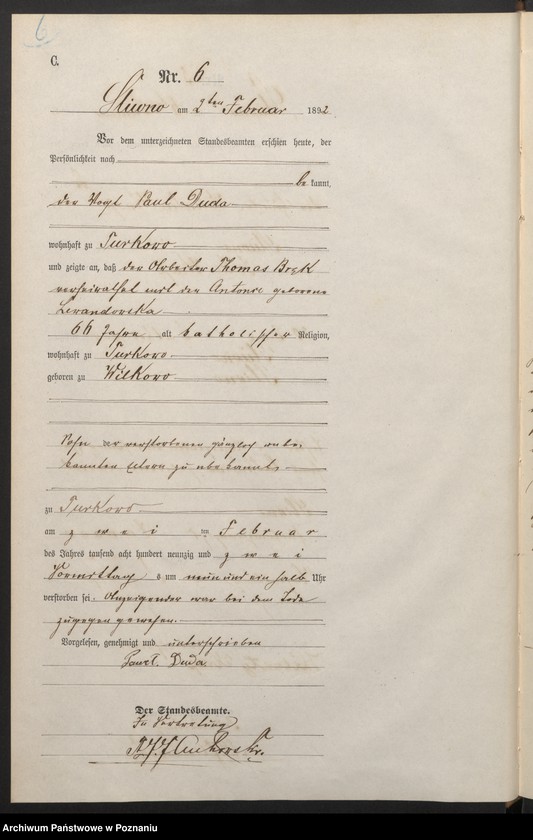 6
C.
Nr. 6
Sliwno am 2ten Februar 1892
Vor dem unterzeichneten Standesbeamten erschien heute, der
Persönlichkeit nach
be kannt,
der Vogt Paul Duda
wohnhaft zu Turkowo
und zeigte an, daß der Arbeiter Thomas Bręk
verheirathet mit der Antonie geborene
Lewandowska
66 Jahre alt katholischer Religion,
wohnhaft zu Turkowo
geboren zu Wilkowo
Sohn der verstorbenen gänzlich unbe-
kannten Eltern zu unbekannt
zu Turkowo
am zwei ten Februar
des Jahres tausend acht hundert neunzig und zwei
Vormittag s um neun und ein halb Uhr
verstorben sei. Anzeigender war bei dem Tode
zugegen gewesen.
Vorgelesen, genehmigt und unterschrieben
Pawel Duda
Der Standesbeamte.
In Vertretung
Archiwum Państwowe w Poznaniu